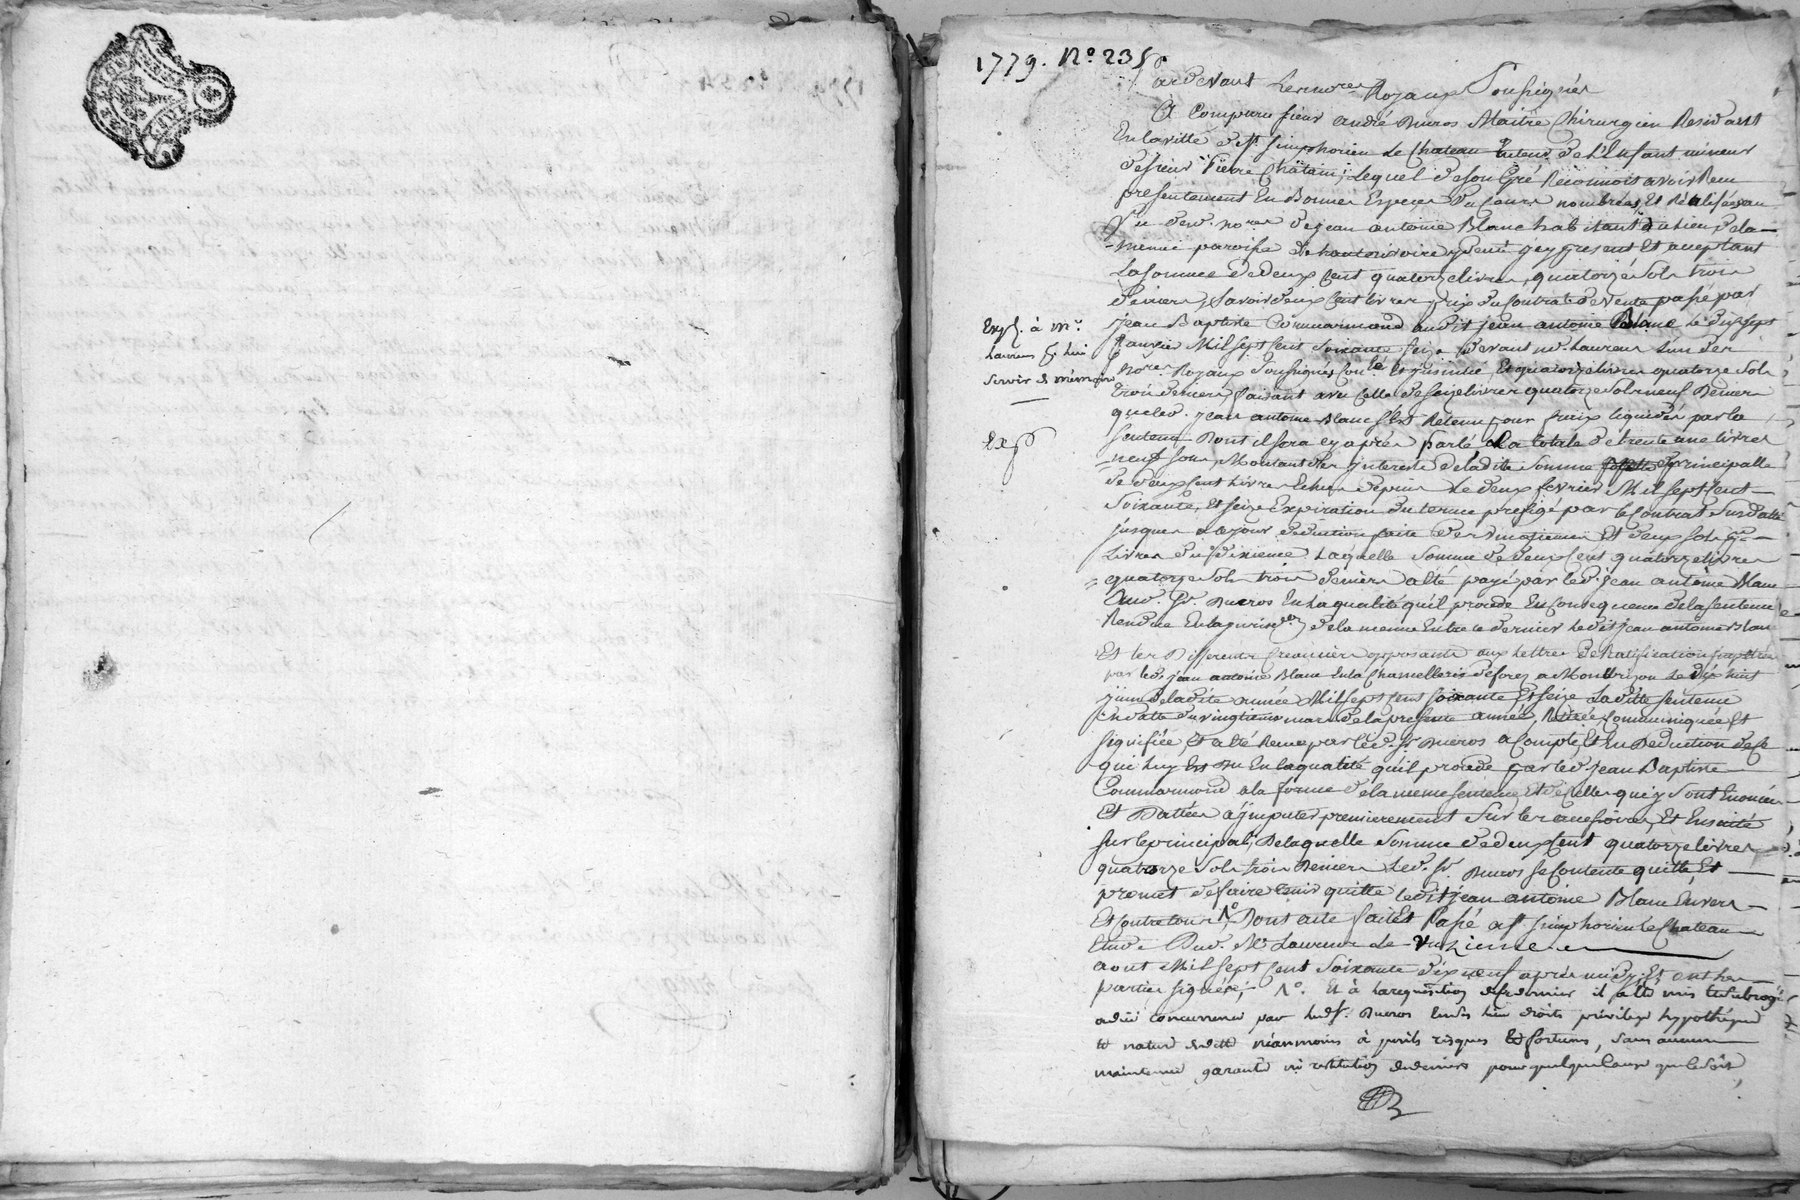 1779. N° 235
Pardevant Les no.res Royaux Soussignés
A Comparu sieur andré Buros Maitre Chirurgien Residant
En la ville de St. simphorien Le Chateau tuteur de L'Enfant mineur
de sieur Pierre Chatain; Lequel de son Gré Reconnoit avoir Reçu
presentement En Bonnes Especes du Cours nombrées, Et Realisées au
Vu desd. no.res de jean antoine Blanc habitant du Lieu de la
menue paroisse de icy present Et acceptant
La somme de deux Cent quatorze livres, quatorze sols trois
deniers, sçavoir deux Cent livres prix du Contrat de vente passé par
jean Baptiste Commarmond audit jean antoine Blanc Le dix sept
janvier Mil sept Cent soixante seize devant me. Laurens L'un des
No.res Royaux soussignés Controllé Et insinué, Et quatorze livres quatorze sols
trois deniers faisant avec Celle de seize livres quatorze sols neuf Deniers
que led. jean antoine Blanc s'Est Retenu pour fraix liquidés par la
sentence Dont il sera cy après parlé La totale de trente une livres
neuf sous Montant des interets de ladite somme principalle
de deux Cent Livres Echus depuis Le deux fevrier Mil sept Cent
soixante, Et seize Expiration du terme prefigé par le Contrat susdatté
jusques a ce jour deduction faite des vingtiemes Et deux sols pr.
Livres du dixieme Laquelle somme de deux Cent quatorze livres
quatorze sols trois deniers a été payé par led. jean antoine Blanc
Aud. Sr. Buros En La qualité qu'il procede En Consequence de la sentence
Rendue En la jurisd.on de la menue Entre ce dernier Ledit jean antoine Blanc
Et les Differents Creanciers opposants aux Lettres de Ratification
par led. jean antoine Blanc En la Chancellerie de forez a Montbrison Le dix huit
juin de ladite année Mil sept Cent soixante Et seize Ladite sentence
En datte du vingtieme mars de la presente année, Retirée, Communiquée Et
signifiée, Et a été Reçue par led. Sr Buros a Compte, Et En Deduction de Ce
qui Luy Est Du En la qualité qu'il procede par led. jean Baptiste
Commarmond a la forme de la meme sentence Et de Celles qui y sont Enoncées
Et Dattées a jmputer premierement sur les accessoires, Et Ensuite
sur le principal; De laquelle somme de deux Cent quatorze livres
quatorze sols trois Deniers Led. Sr. Buros se Contente quitte, Et
promet de faire tenir quitte ledit jean antoine Blanc Envers
Et Contre tous; N° Dont acte fait Et Passé a St simphorien le Chateau
Etude Dud. Me Laurens Le onzieme
aout Mil sept Cent soixante dix neuf après midy, Et ont les
parties signés; N°. Et à La requisition de ce dernier il a été mis subrogé
a due concurrence par led Sr. Buros En ses lieu droits privilege hypothéque
et nature de dette néanmoins à perils risques Et fortunes, sans aucune
maintenue garantie ni restitution de deniers pour quelque cause que ce soit,
Exp. à Mr.
Laurens p. lui
servir de mémoire
Exp